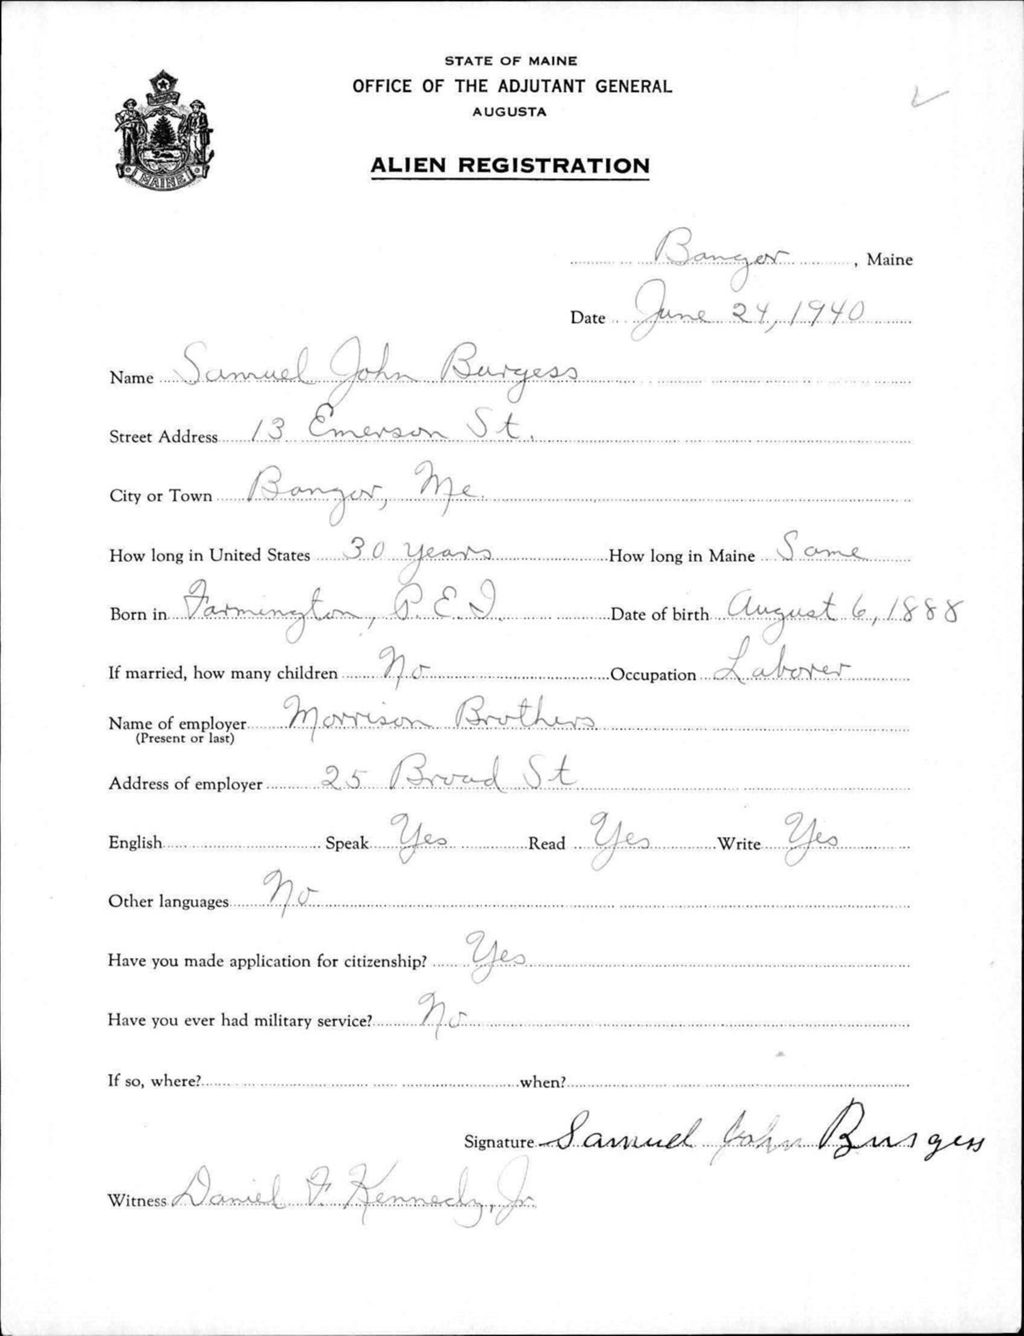 STATE OF MAINE
OFFICE OF THE ADJUTANT GENERAL
AUGUSTA
ALIEN REGISTRATION
MAINE
Bangor, Maine
Date June 24, 1940
Name Samuel John Burgess
Street Address 13 Emerson St.
City or Town Bangor, Me.
How long in United States 30 years How long in Maine Same
Born in Farmington, P.E.I. Date of birth August 6, 1888
If married, how many children No Occupation Laborer
Name of employer Morrison Brothers
(Present or last)
Address of employer 25 Broad St
English Speak Yes Read Yes Write Yes
Other languages No
Have you made application for citizenship? Yes
Have you ever had military service? No
If so, where? when?
Signature Samuel John Burgess
Witness Daniel F. Kennedy, Jr.